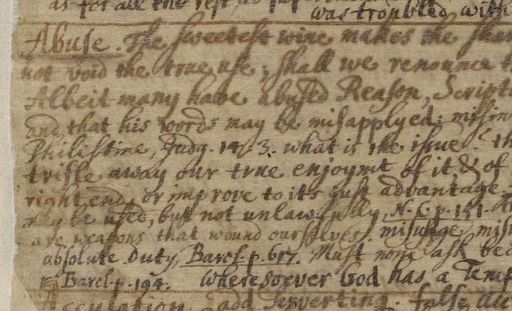 as for all the rest
was troubled with
Abuse. The sweetest wine makes the
not void the true use; shall we renounce
Albeit many have abused Reason, Script
and that his words may be misapplyed;
Philistine, Judg. 3. what is the issue?
trifle away our true enjoymt of it, & of
right end, or improve to its just advantage.
may be used, but not unlawfully, N. 6. p. 151.
are weapons that wound ourselves; misuse,
absolute Duty, Barcl. p. 617. Must none ask
Barcl. p. 194. Wheresoever God has a Temp
add Perverting. false